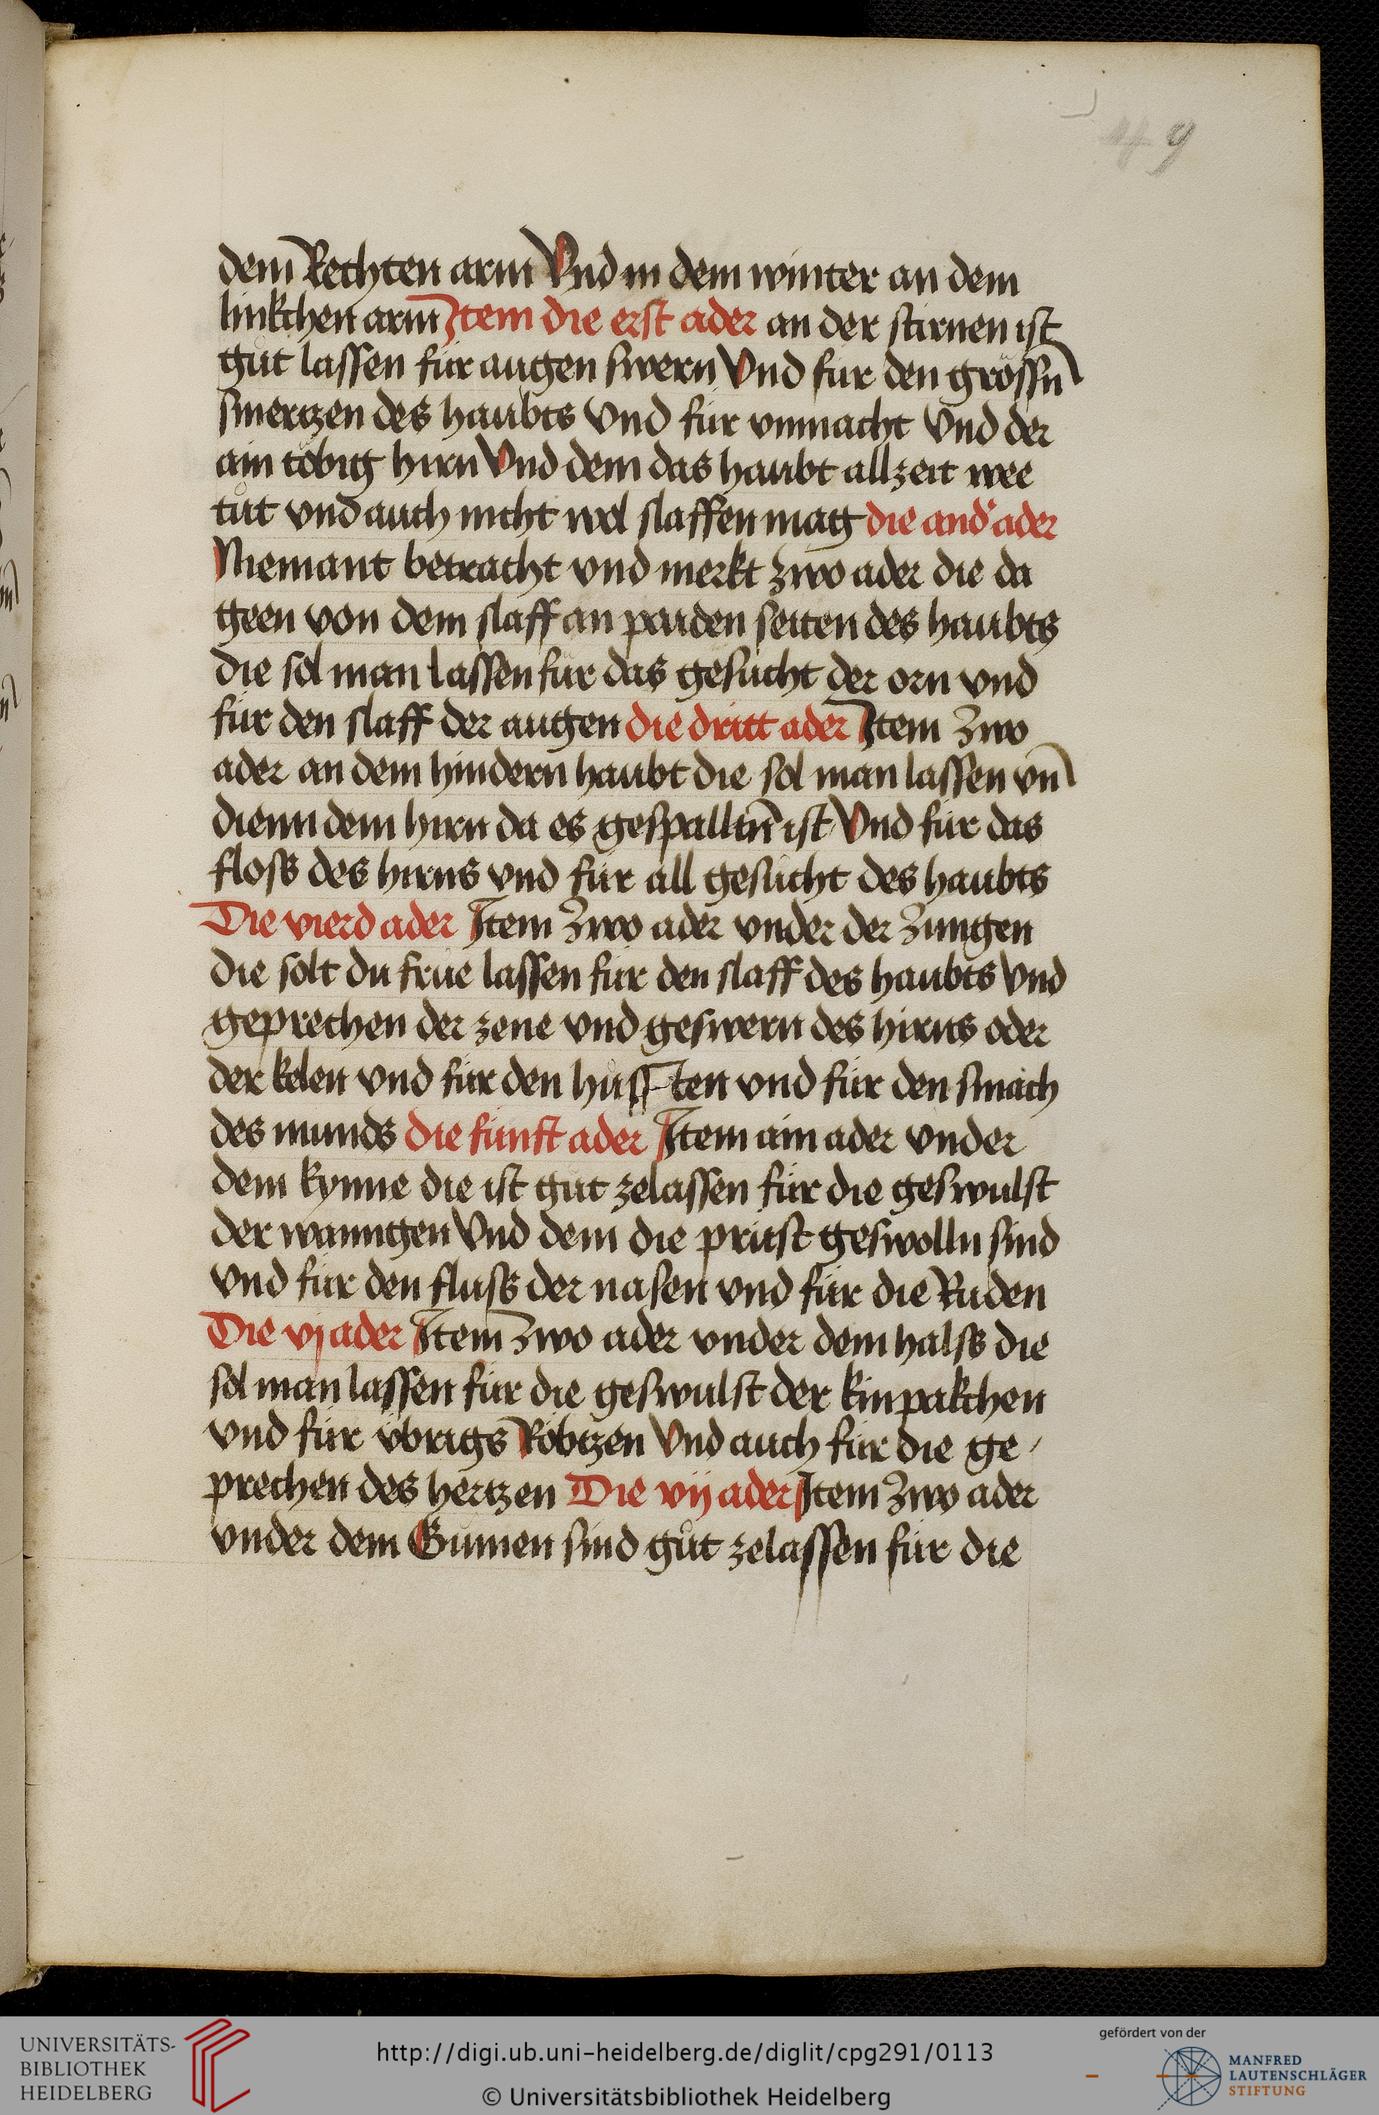 49
dem Rechten arm Vnd in dem winter an dem
linkchen arm Item die erst ader an der stirnen ist
gůt lassen für augen swern Vnd für den grössn̄
smertzen des haubts Vnd für vnmacht Vnd der
ain töbig hirn Vnd dem das haubt allzeit wee
tůt vnd auch nicht wol slaffen mag die and' ader
Niemant betracht vnd merkt zwo ader die da
geen von dem slaff an paiden seiten des haubts
die sol man lassen für das gesücht der orn vnd
für den slaff der augen die dritt ader Item zwo
ader an dem hindern haubt die sol man lassen vn̄
dienn dem hirn da es gespalltn̄ ist Vnd für das
floss des hirns vnd für all gesücht des haubts
Die vierd ader Item zwo ader vnder der zungen
die solt du frue lassen für den slaff des haubts Vnd
geprechen der zene vnd geswern des hirns oder
der kelen vnd für den hůssten vnd für den smach
des munds die fünft ader Item ain ader vnder
dem kynne die ist gůt zelassen für die geswulst
der wanngen Vnd dem die prüst geswolln sind
vnd für den fluss der nasen vnd für die Ruden
Die vj ader Item zwo ader vnder dem halss die
sol man lassen für die geswulst der kinpakchen
vnd für übrigs Röbtzen Vnd auch für die ge
prechen des hertzen Die vij ader Item zwo ader
vnder dem Gůmen sind gůt zelassen für die
UNIVERSITÄTS-
BIBLIOTHEK
HEIDELBERG
http://digi.ub.uni-heidelberg.de/diglit/cpg291/0113
© Universitätsbibliothek Heidelberg
gefördert von der
MANFRED
LAUTENSCHLÄGER
STIFTUNG